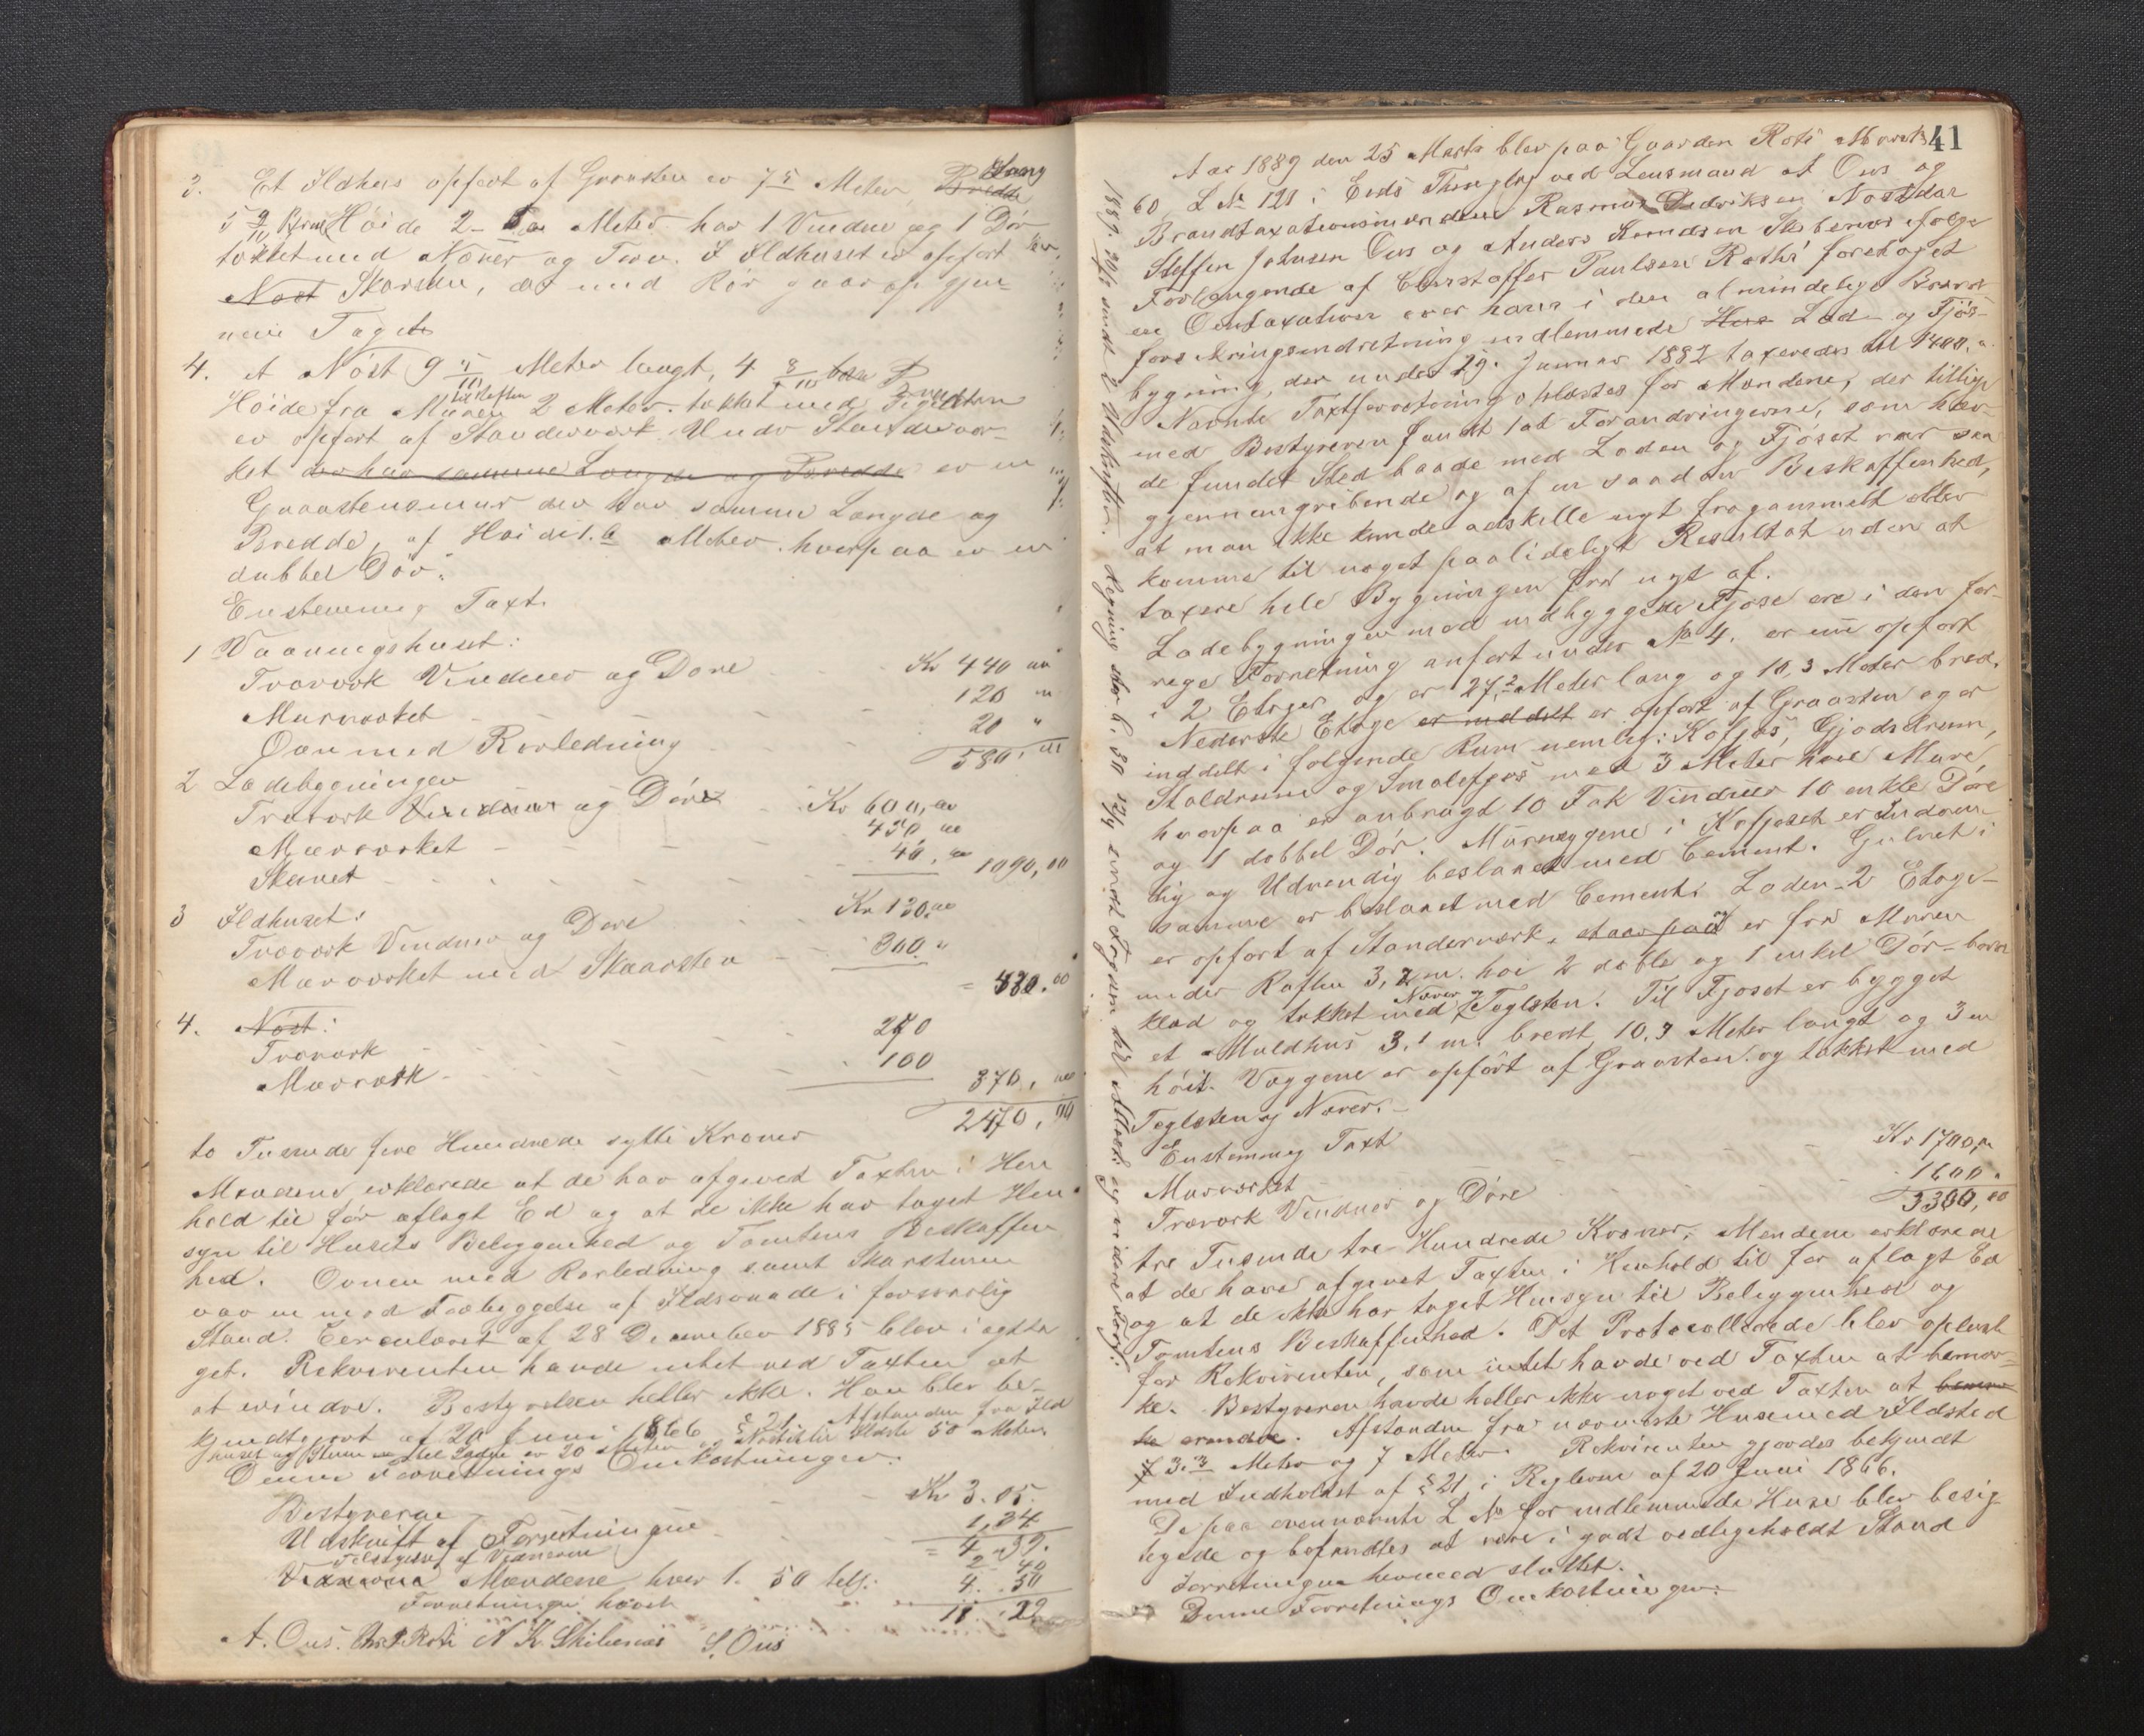 3. Et Ildhus opført af Graasten er 7 5 Meter Lang
5 9/10 Bred Høide 2 Meter har 1 Vindue og 1 Dør
tækket med Næver og Torv. I Ildhuset er opført
Skorsten, der med Rør gaar op gjen-
nem Taget
4. et Nöst 9 5/10 Meter langt, 4 8/10 Bredt
Höide fra Muren til Raften 2 Meter. tækket med Teglsten
er opført af Standerværk. Under Standervær-
ket der har samme Længde og Bredde er en
Graastensmur der har samme Længde og
Bredde, af Høide 1.6 Meter. hvorpaa er en
dubbel Dör.
Enstemmig Taxt.
1 Vaaningshuset:
Træværk Vinduer og Döre Kr 440 00
Murværket 120 "
Ovn med Rørledning 20 "
580, 00
2 Ladebygningen
Træværk Vinduer og Döre Kr 600,00
Murværket 450,00
Skuret 40,00 1090,00
3 Ildhuset:
Træværk Vinduer og Döre Kr 130,00
Murværket med Skorsten 300 "
= 430.00
4. Nöst:
Træværk 270
Murværk 100
370, 00
2470, 00
to Tusinde fire Hundrede sytti Kroner
Mændene erklærede at de har afgivet Taxten i Hen
hold til før aflagt Ed og at de ikke har taget Hen
syn til Husets Beliggenhed og Tomtens Beskaffen
hed. Ovnen med Rørledning samt Skorstenen
var med Forebyggelse af Ildsvaade i forsvarlig
Stand. Cirkulæret af 28 December 1885 blev iagtta
get. Rekvirenten havde intet ved Taxten at
at erindre. Bestyrelsen heller ikke. Han blev be-
kjendtgjort af 20 Juni 1866 § 21. Afstanden fra Ild
huset og Stuen til Laden er 20 Meter Nöst til Ildsted 50 Meter.
Denne Forretnings Omkostninger.
Bestyreren Kr 3.05.
Udskrift af Forretningen 1,34
= 4.39.
Tilsigelse af Mændene 2 40
Mændene hver 1. 50 tils. 4. 50
Forretningen hævet
11. 29
A. Ous. Chr. P. Roti A K. Skibenes S. Ous
41
Aar 1889 den 25 Marts blev paa Gaarden Roti Matr. No
60, L No 121 i Eids Thinglag ved Lensmand A Ous og
Brandtaxationsmændene Rasmus Diedriksen Nosdal
Steffen Johnsen Ous og Anders Knudsen Skibenes ifølge
Forlangende af Christoffer Paulsen Rothi foretaget
en Omtaxation over hans i den almindelige Brand
forsikringsindretning indlemmede Lad- og Fjös-
bygning, der under 29. Januar 1882 taxeredes til 1400.
Nævnte Taxtforretning oplæstes for Mændene, der tillige
med Bestyreren fandt at Forandringerne, som hav-
de fundet Sted baade med Laden og Fjöset var saa
gjennemgribende og af en saadan Beskaffenhed,
at man ikke kunde adskille nyt fra gammelt eller
komme til noget paalideligt Resultat uden at
taxere hele Bygningen fra nyt af.
Ladebygningen med indbyggede Fjöse ere i den for-
rige Forretning anført under No 4. er nu opført
i 2 Etager og er 27,2 Meter lang og 10,3 Meter bred.
Nederste Etage er inddelt er opført af Graasten og er
inddelt i følgende Rum nemlig: Kofjøs, Gjødselrum,
Staldrum og Smalefjøs med 3 Meter høie Mure,
hvorpaa er anbragt 10 Fak Vinduer 10 enkle Döre
og 1 dobbel Dör. Murveggene i Kofjøset er Indven-
dig og Udvendig beslaaet med Cement. Gulvet i
samme er beslaaet med Cement. Laden 2 Etage
er opført af Standerværk, og er fra Muren
under Raften 3,2 m. høi 2 doble og 1 enkel Dör- bord
klæd og tækket med Næver og Teglsten. Til Fjøset er bygget
et Muldhus 3.1 m. bredt, 10.3 Meter langt og 3 m
höit. Væggene er opført af Graasten og tækket med
Teglsten og Næver.
Enstemmig Taxt
Murværket Kr 1700,00
Træværk Vinduer og Døre 1600 "
3300,00
tre Tusinde tre Hundrede Kroner. Mændene erklærede
at de have afgivet Taxten i Henhold til før aflagt Ed
og at de ikke har taget Hensyn til Beliggenhed og
Tomtens Beskaffenhed. Det Protocollerede blev oplæst
for Rekvirenten, som intet havde ved Taxten at bemær-
ke. Bestyreren havde heller ikke noget ved Taxten at
erindre. Afstanden fra nærmeste Huse med Ildsted
3.3 Meter og 7 Meter. Rekvirenten gjordes bekjendt
med Indholdet af § 21 i Reglerne af 20 Juni 1866.
De paa ovennævnte L No før indlemmede Huse blev besig-
tigede og befandtes at være i godt vedligeholdt Stand
Forretningen hermed sluttet.
Denne Forretnings Omkostninger:
1889. 20/6 sendt 2 Udskrifter. Regning stor 6. 30